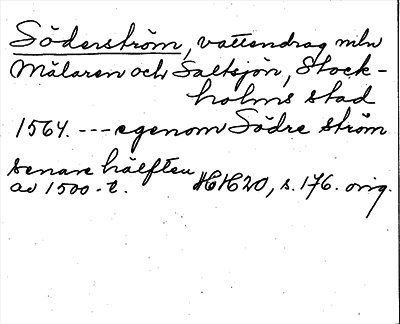 Söderström, vattendrag mln
Mälaren och Saltsjön, Stock-
holms stad
1564. --- egenom Södre ström
senare hälften
av 1500-t. HH20, s. 176. orig.